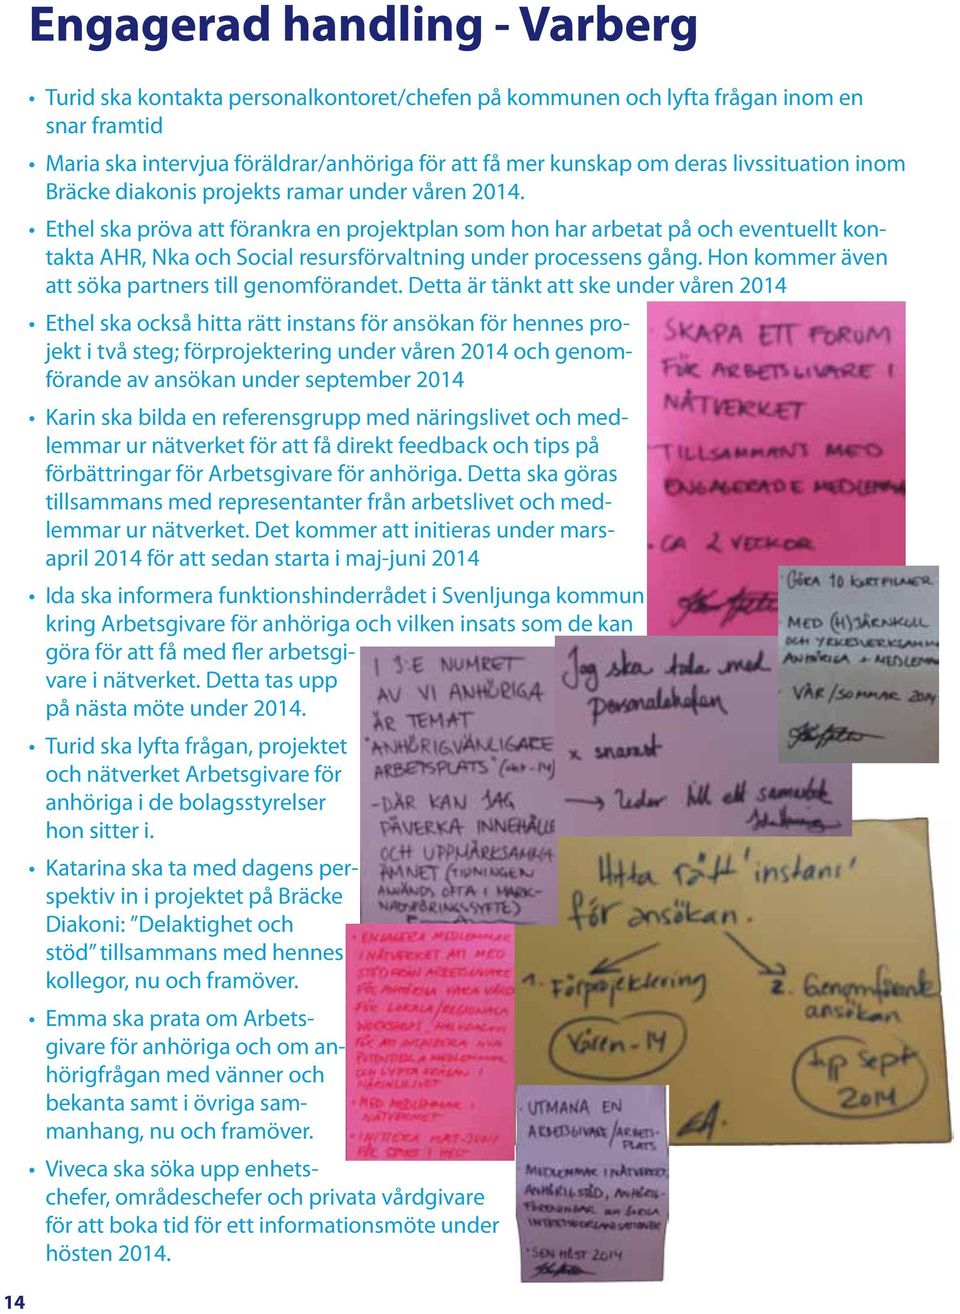 Engagerad handling - Varberg
• Turid ska kontakta personalkontoret/chefen på kommunen och lyfta frågan inom en
snar framtid
• Maria ska intervjua föräldrar/anhöriga för att få mer kunskap om deras livssituation inom
Bräcke diakonis projekts ramar under våren 2014.
• Ethel ska pröva att förankra en projektplan som hon har arbetat på och eventuellt kon-
takta AHR, Nka och Social resursförvaltning under processens gång. Hon kommer även
att söka partners till genomförandet. Detta är tänkt att ske under våren 2014
• Ethel ska också hitta rätt instans för ansökan för hennes pro-
jekt i två steg; förprojektering under våren 2014 och genom-
förande av ansökan under september 2014
• Karin ska bilda en referensgrupp med näringslivet och med-
lemmar ur nätverket för att få direkt feedback och tips på
förbättringar för Arbetsgivare för anhöriga. Detta ska göras
tillsammans med representanter från arbetslivet och med-
lemmar ur nätverket. Det kommer att initieras under mars-
april 2014 för att sedan starta i maj-juni 2014
• Ida ska informera funktionshinderrådet i Svenljunga kommun
kring Arbetsgivare för anhöriga och vilken insats som de kan
göra för att få med fler arbetsgi-
vare i nätverket. Detta tas upp
på nästa möte under 2014.
• Turid ska lyfta frågan, projektet
och nätverket Arbetsgivare för
anhöriga i de bolagsstyrelser
hon sitter i.
• Katarina ska ta med dagens per-
spektiv in i projektet på Bräcke
Diakoni: ”Delaktighet och
stöd” tillsammans med hennes
kollegor, nu och framöver.
• Emma ska prata om Arbets-
givare för anhöriga och om an-
hörigfrågan med vänner och
bekanta samt i övriga sam-
manhang, nu och framöver.
• Viveca ska söka upp enhets-
chefer, områdeschefer och privata vårdgivare
för att boka tid för ett informationsmöte under
hösten 2014.
· SKAPA ETT FORUM
FÖR ARBETSLIVARE I
NÄTVERKET
TILLSAMMANS MED
ENGAGERADE MEDLEMMA
· CA 2 VECKOR
· GÖRA 10 KORTFILMER
· MED (H)JÄRNKOLL
OCH YRKESVERKSAMMA
ANHÖRIGA + MEDLEMMA
· VÅR/SOMMAR 2014
I 3:E NUMRET
AV VI ANHÖRIGA
ÄR TEMAT
"ANHÖRIGVÄNLIGARE
ARBETSPLATS" (okt-14)
- DÄR KAN JAG
PÅVERKA INNEHÅLL
OCH UPPMÄRKSAMMA
ÄMNET (TIDNINGEN
ANVÄNDS OFTA I MARK-
NADSFÖRINGSSYFTE)
Jag ska tala med
Personalchefen
x snarast
→ leder till ett samarbete
Hitta rätt 'instans'
för ansökan.
1. Förprojektering
Våren -14
2. Genomförande
ansökan
typ sept
2014
· ENGAGERA MEDLEMMAR
I NÄTVERKET ATT MED
STÖD FRÅN ARBETSGIVARE
FÖR ANHÖRIGA VARA VÄRD
FÖR LOKALA/REGIONALA
WORKSHOPS, HALVDAGAR
FÖR ATT INSPIRERA NYA
POTENTIELLA MEDLEMMAR
OCH LYFTA FRÅGAN I
NÄRINGSLIVET
· MED MEDLEMMAR I
NÄTVERKET
· INITIERA MAJ-JUNI
FÖR START I HÖST
· UTMANA EN
ARBETSGIVARE/ARBETS-
PLATS
· MEDLEMMAR I NÄTVERKET,
ANHÖRIGSTÖD, ANHÖRIG-
FÖRENINGAR OCH ÖVRIGA
INTRESSEORGANISATIONER
· SEN HÖST 2014
14